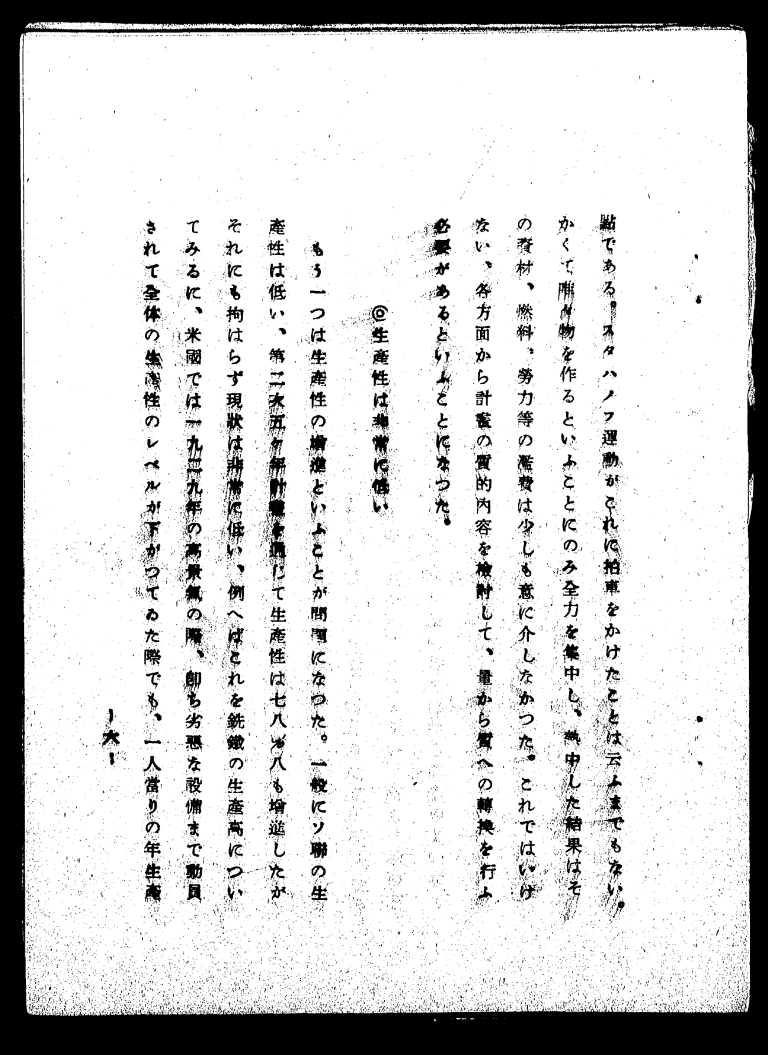 點である。スタハノフ運動がこれに拍車をかけたことは云ふまでもない。
かくて唯々物を作るといふことにのみ全力を集中し、熱中した結果はそ
の資材、燃料、勞力等の濫費は少しも意に介しなかつた。これではいけ
ない、各方面から計畫の質的內容を檢討して、量から質への轉換を行ふ
必要があるといふことになつた。
◎生產性は非常に低い
もう一つは生產性の增進といふことが問題になつた。一般にソ聯の生
產性は低い、第二次五ケ年計畫を通じて生產性は七八%八も增進したが
それにも拘はらず現狀は非常に低い、例へばこれを銑鐵の生產高につい
てみるに、米國では一九二九年の高景氣の際、卽ち劣惡な設備まで動員
されて全體の生產性のレベルが下がつてゐた際でも、一人當りの年生產
ー六ー